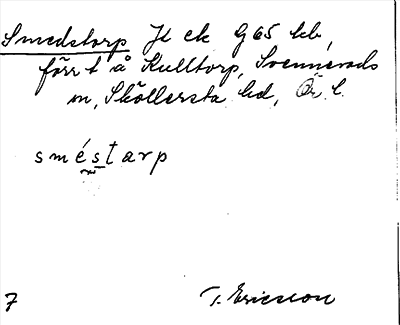 Smedstorp Jt ek G65 kb,
förr t å Kulltorp, Svennevads
sn, Sköllersta hd, Ör. l.
sméstarp
7 T. Ericsson